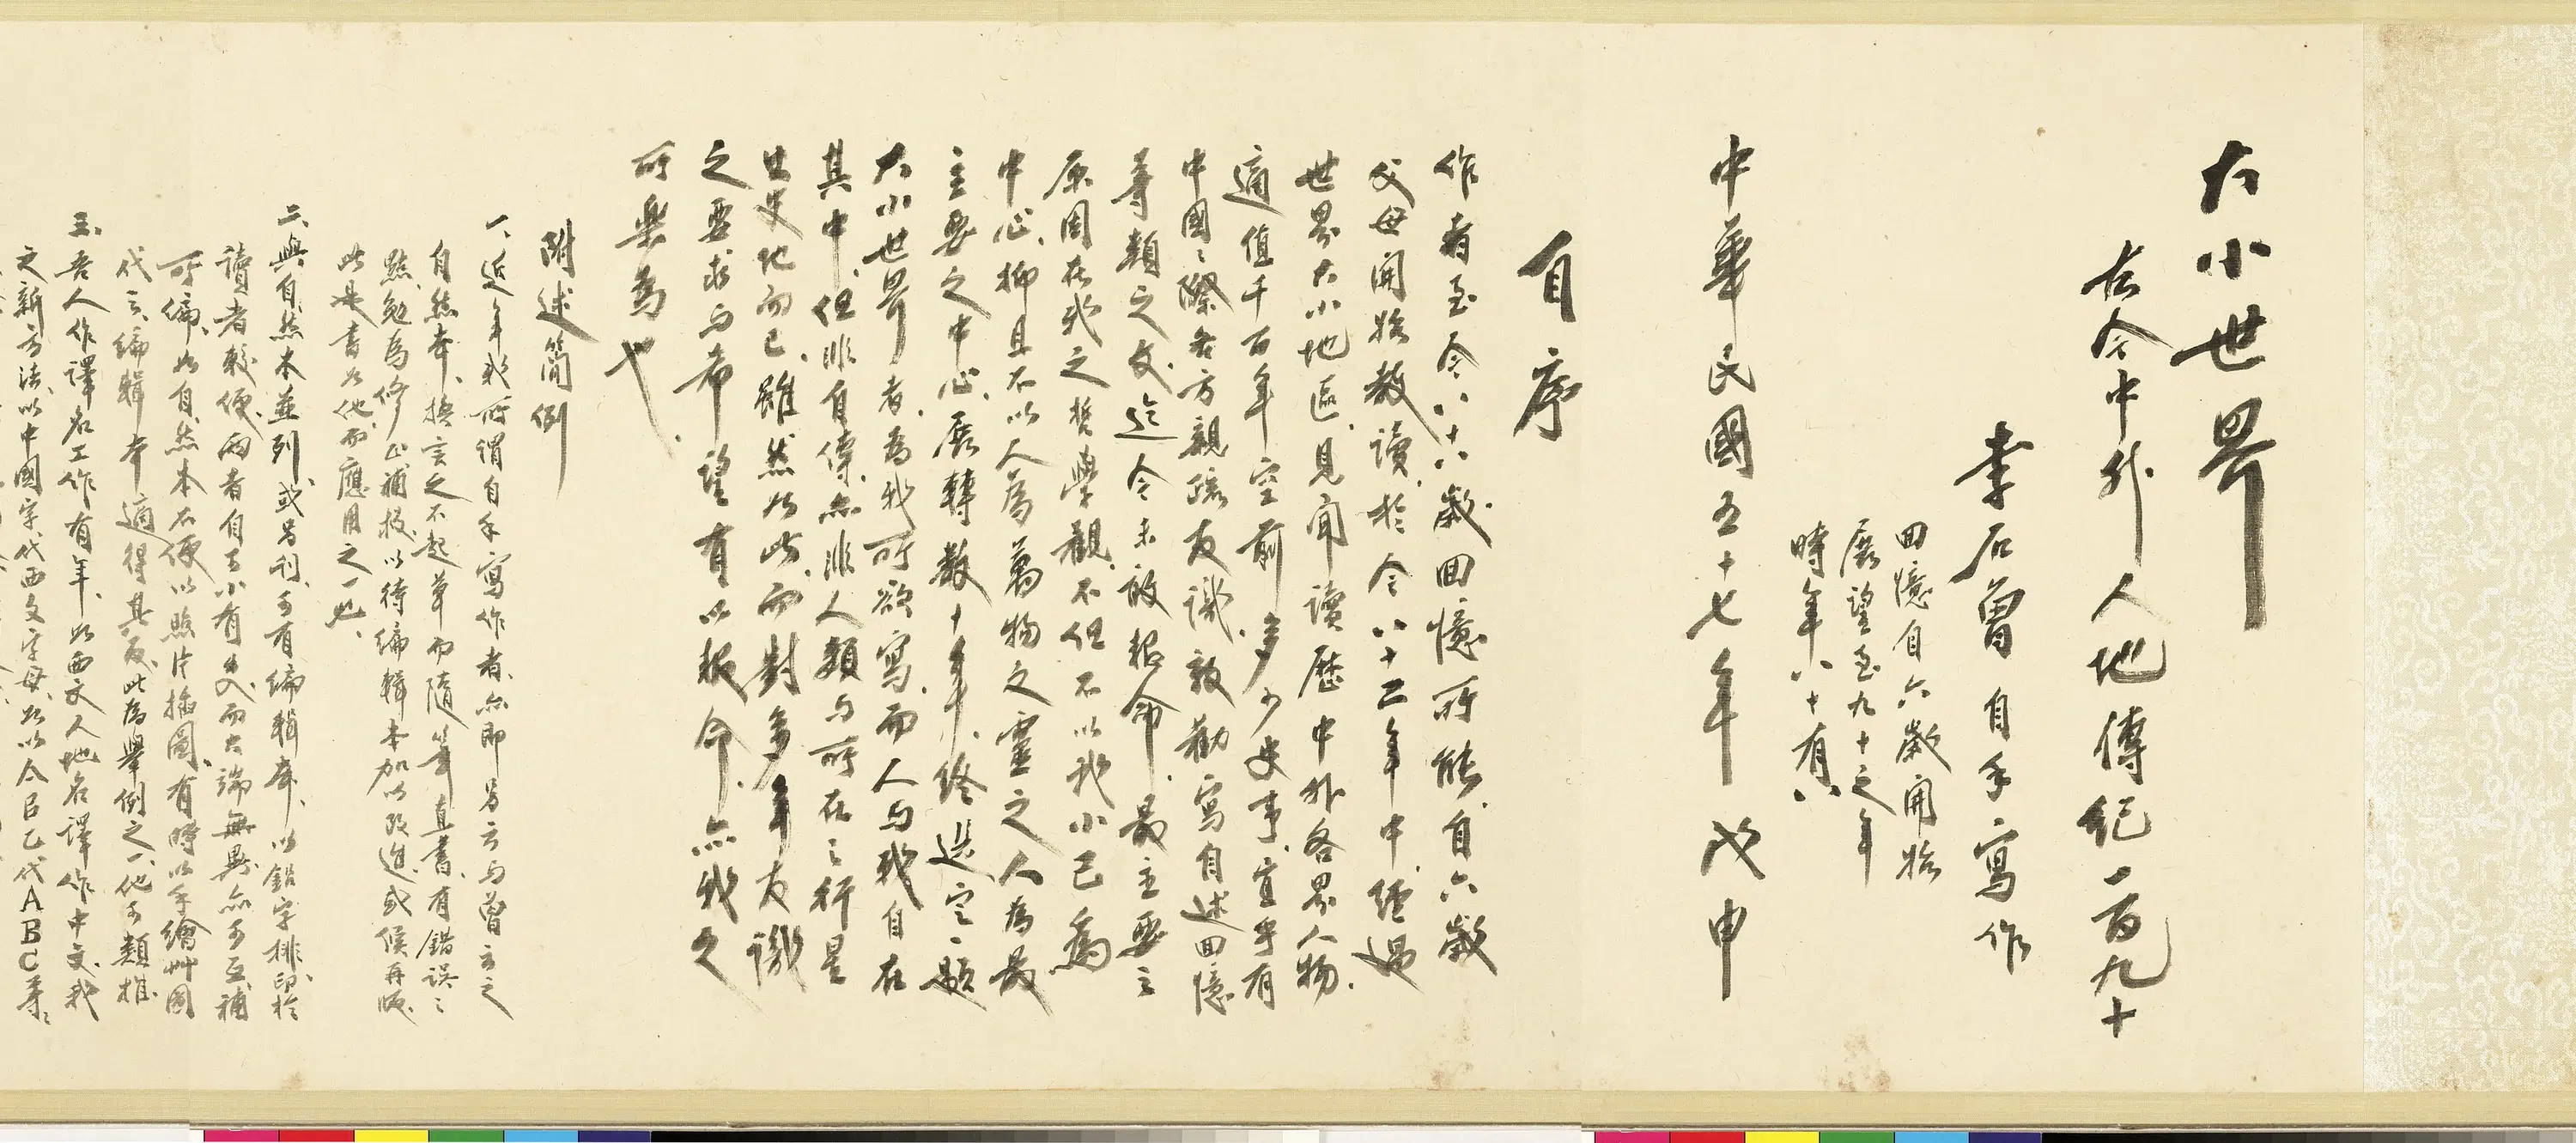 大小世界
古今中外人地傳紀一百九十
李石曾自手寫作
回憶自六歲開始
展望至九十之年
時年八十有八
中華民國五十七年戊申
自序
作者至今八十八歲回憶所能自六歲
父母開始教讀於今八十二年中經過
世界大小地區見聞讀歷中外各界人物
適值千百年空前多少史事宜乎有
中國之際各方親疏友識敦勸寫自述回憶
等類之文迄今未敢報命最主要之
原因在我之哲學觀不但不以我小己為
中心抑且不以人為萬物之靈之人為最
主要之中心展轉數十年終選定一題
大小世界者為我所欲寫而人與我自在
其中但非自傳亦非人類與所在之行星
世史地而已雖然如此而對多年友識
之要求與希望有以報命亦我之
所樂為也
附述簡例
一、近年我所謂自手寫作者亦即另云與曾言之
自然本、換言之不起草而隨筆直書、有錯誤之
點勉為修正補救以待編輯本加以改進或候再版
此是書如他而應用之一也、
二、與自然本並列或另刊可有編輯本、以鉛字排印於
讀者較便兩者自可小有出入而大端無異亦可互補
所偏、如自然本不便以照片插圖有時以手繪艸圖
代之編輯本適得其反此為舉例之一他可類推
三、吾人作譯名工作有年、如西文人地名譯作中文、我
之新方法、以中國字代西文字母如以今己乙代ABC等